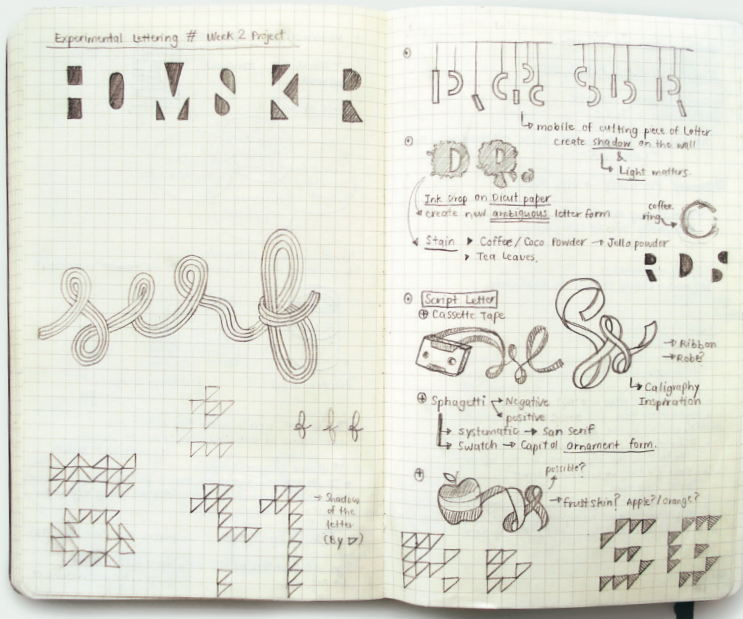 Experimental Lettering # Week 2 Project.
HOMSKR
serf
f f f
Shadow
of the
letter
(By ▷)
mobile of cutting piece of Letter
create shadow on the wall
&
Light matters.
D R.
Ink Drop on Dicut paper
create new ambiguous letter form
coffee
ring
C
Stain ▸ Coffee / Coco Powder → Jello powder
▸ Tea Leaves.
R D S
Script Letter
Cassette Tape
→ Ribbon
→ Robe?
Caligraphy
Inspiration
Sphagetti → Negative
positive
→ systematic → San serif
→ Swatch → Capitol ornament form.
possible?
→ fruit skin? Apple? / Orange?